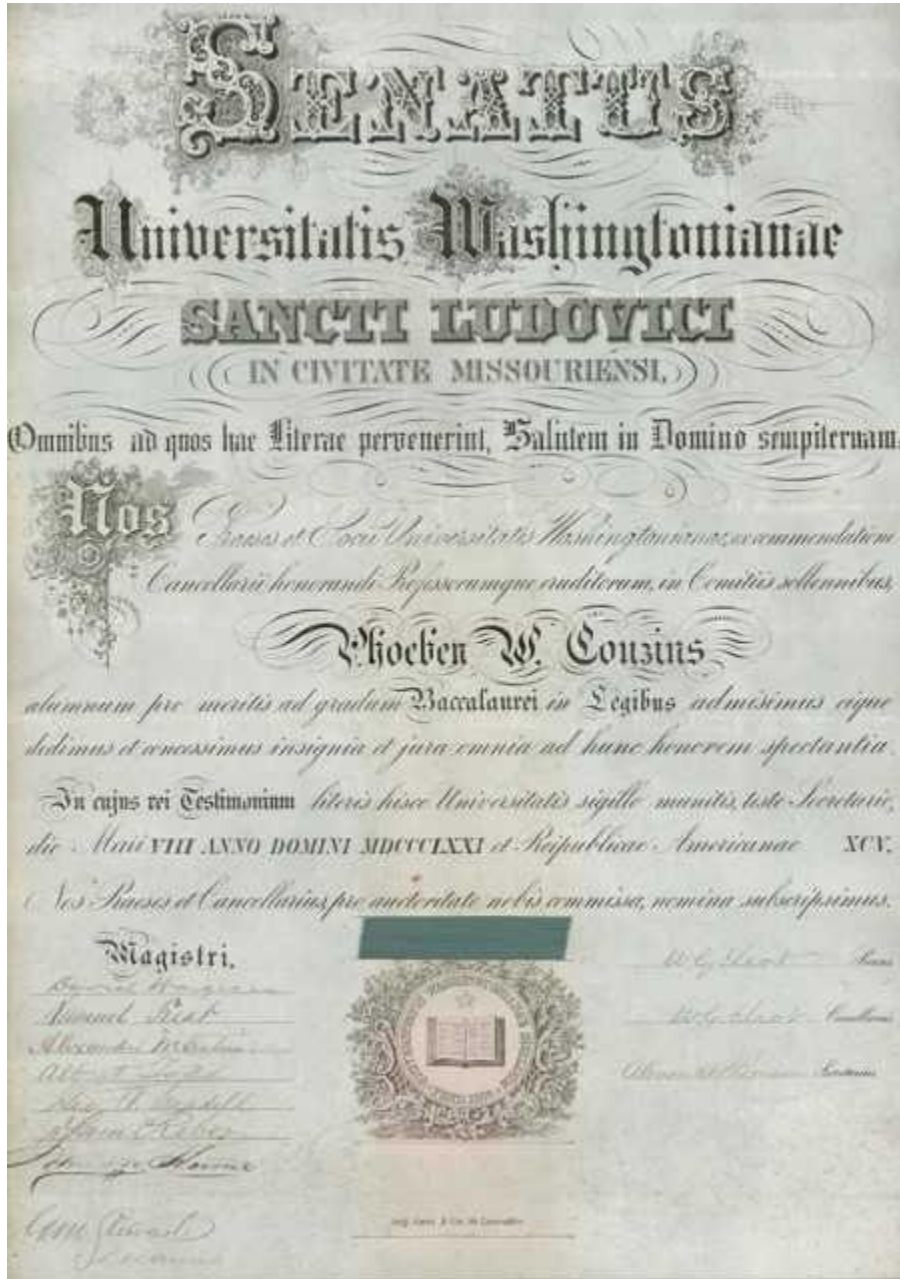 SENATUS
Universitatis Washingtonianae
SANCTI LUDOVICI
IN CIVITATE MISSOURIENSI,
Omnibus ad quos hae Literae pervenerint, Salutem in Domino sempiternam.
Nos Praeses et Socii Universitatis Washingtonianae, ex commendatione
Cancellarii honorandi Professorumque eruditorum, in Comitiis sollennibus,
Phoeben W. Couzins
alumnum pro meritis ad gradum Baccalaurei in Legibus admisimus eique
dedimus et concessimus insignia et jura omnia ad hunc honorem spectantia.
In cujus rei Testimonium literis hisce Universitatis sigillo munitis, teste Secretario,
die Maii VIII ANNO DOMINI MDCCCLXXI et Reipublicae Americanae XCV.
Nos Praeses et Cancellarius, pro auctoritate nobis commissa, nomina subscripsimus.
Magistri.
Samuel Treat
Alexander
Albert Todd